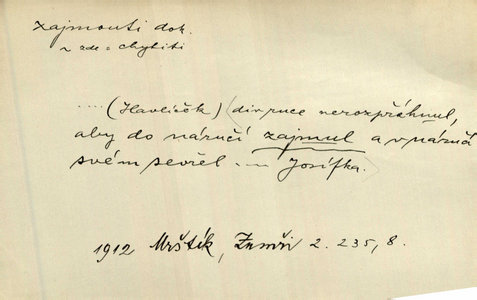 zajmouti dok.
~ zde = chytiti
.... (Havlíček) (div ruce nerozpřáhnul,
aby do náručí zajmul a v náručí
svém sevřel ... Josífka.)
1912 Mrštík, Zumři 2. 235, 8.